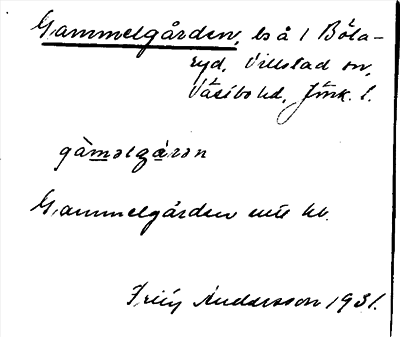 Gammelgården, bs å 1 Böla-
ryd, Villstad sn,
Västbo hd, Jönk. l.
gàmalgárən
Gammelgården enl. kb.
Andersson 1931.